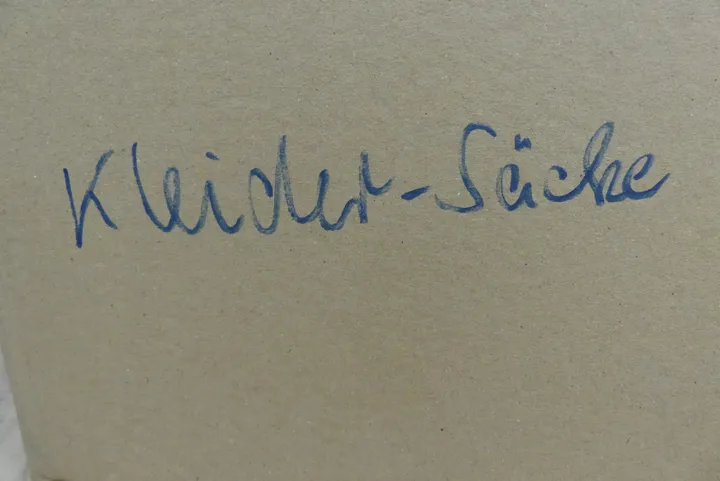 Kleider-Säcke